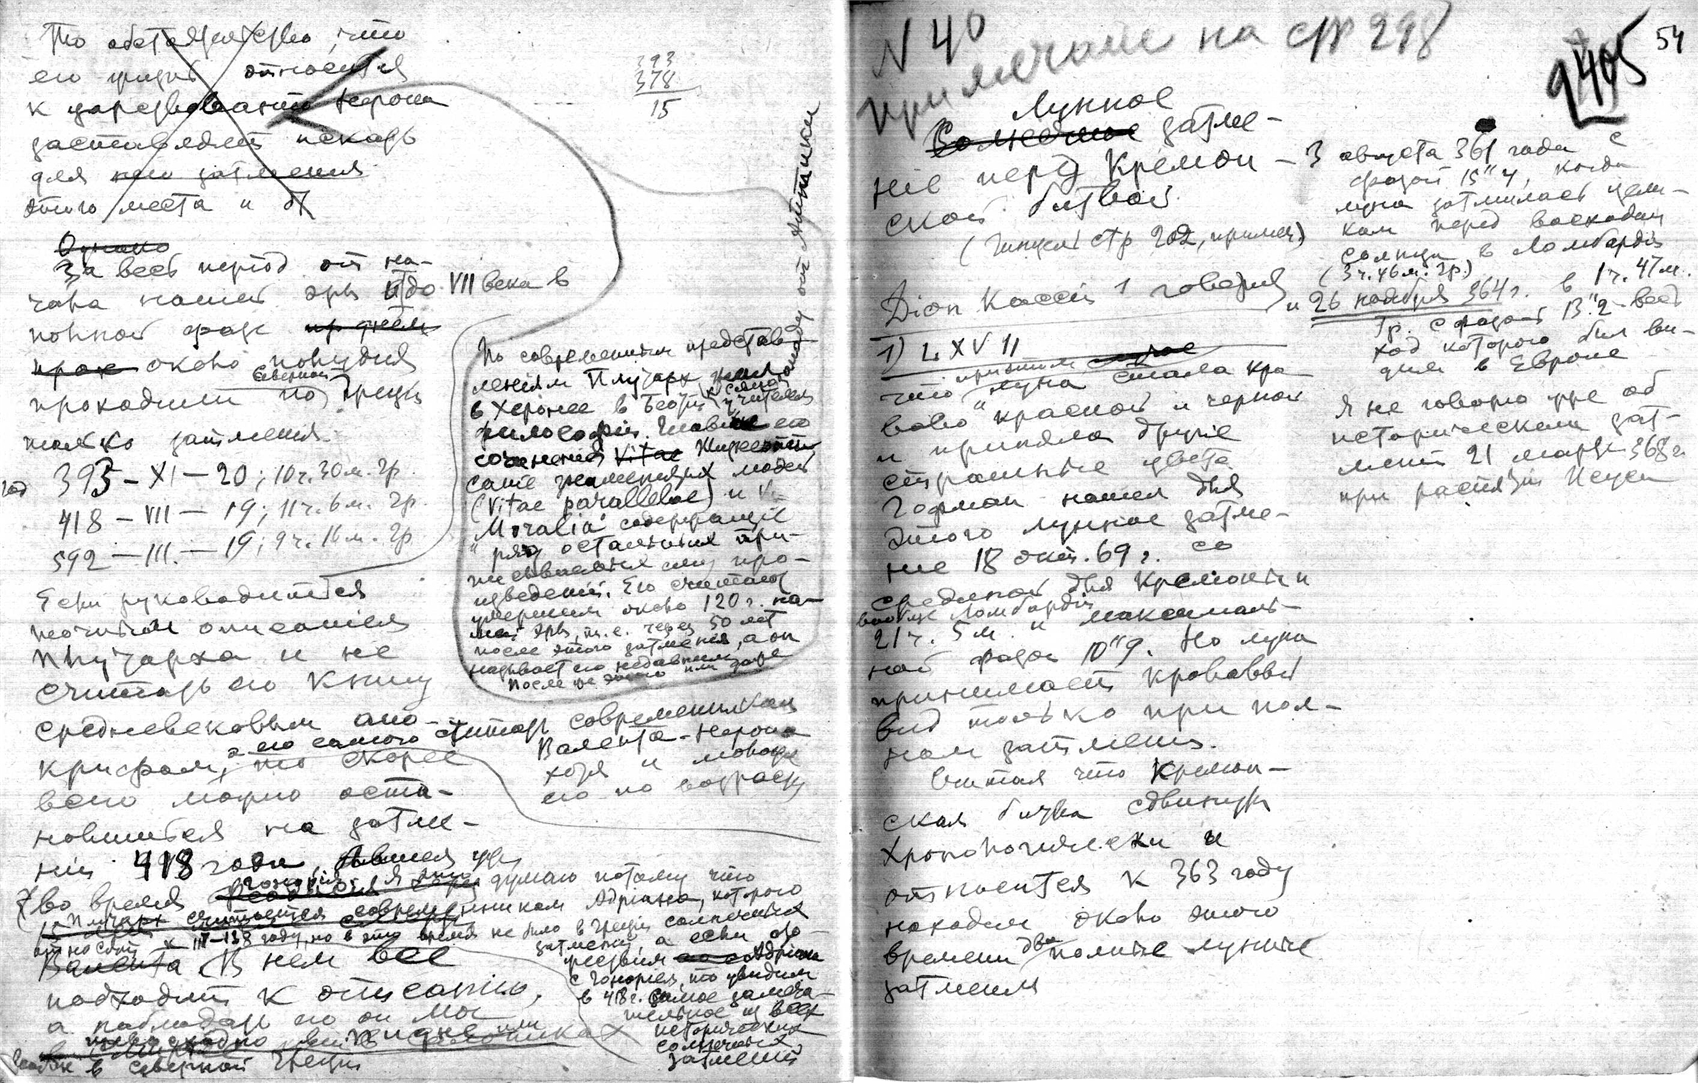 То обстоятельство, что
его относится
к царствованию Нерона
заставляет искать
для него затмения
этого места и
Однако
За весь период от на-
чала нашей эры и до VII века в
полной фазе
около полудня
проходили по Северной Греции
только затмения
год 393 – XI – 20; 10ч. 30м. Гр.
418 – VII – 19; 11ч. 6м. Гр.
592 – III. – 19; 9ч. 16м. Гр
Если руководиться
точным описанием
Плутарха и не
считать его книгу
средневековым апо-
крифом, а его самого считать современником
Валента-Нерона
хотя и моложе
его по возрасту
то скорее
всего можно оста-
новиться на затме-
нии 418 года
во время Гонория. Я это думаю потому что
Плутарх считается современником Адриана, которого
относят к 117–138 году, но в это время не было в Греции солнечных
затмений, а если ото-
Адриана
с Гонорием, то увидим
в 418 г. самое замеча-
тельное из всех
исторических
солнечных
затмений
Валента В нем все
подходит к описанию,
а наблюдать его он мог
в Северной Греции
393
378
15
По современным представ-
лениям Плутарх жил
в Херонее в Беотии
философии. Главные его
сочинения Vitae Жизнеописание
знаменитых людей
(Vitae parallelae) и
Moralia содержащие
ряд остальных при-
писываемых ему про-
изведений. Его считают
умершим около 120 г. на-
шей эры, т.е. через 50 лет
после этого затмения, а он
называет его недавним
После же этого или даже
N 40
примечание на стр 298
2405
54
Лунное
Солнечное затме-
ние перед Кремон-
ской битвой.
(Гинцель стр 202, примеч.)
Дион Кассий 1 говорит
1) LXVII
что при этом луна стала кро-
вово "красной и черной
и приняла другие
страшные цвета
Гофман нашел для
этого лунное затме-
ние 18 окт. 69 г. со
срединой для Кремоны и
Ломбардии
21ч. 5м. и максималь-
ной фазой 10"9. Но луна
принимает кровавый
вид только при пол-
ном затмении.
Считая что Кремон-
ская битва сдвинута
хронологически и
относится к 363 году
находим около этого
времени два полные лунные
затмения
3 августа 361 года с
фазой 15"4, когда
луна затмилась цели-
ком перед восходом
солнца в Ломбардии
(3ч. 46м. Гр.)
и 26 ноября 364 г. в 1ч. 47м.
Гр. с фазой 13"2 весь
ход которого был ви-
ден в Европе
Я не говорю уже об
историческом зат-
мении 21 марта 368 г.
при распятии Иисуса